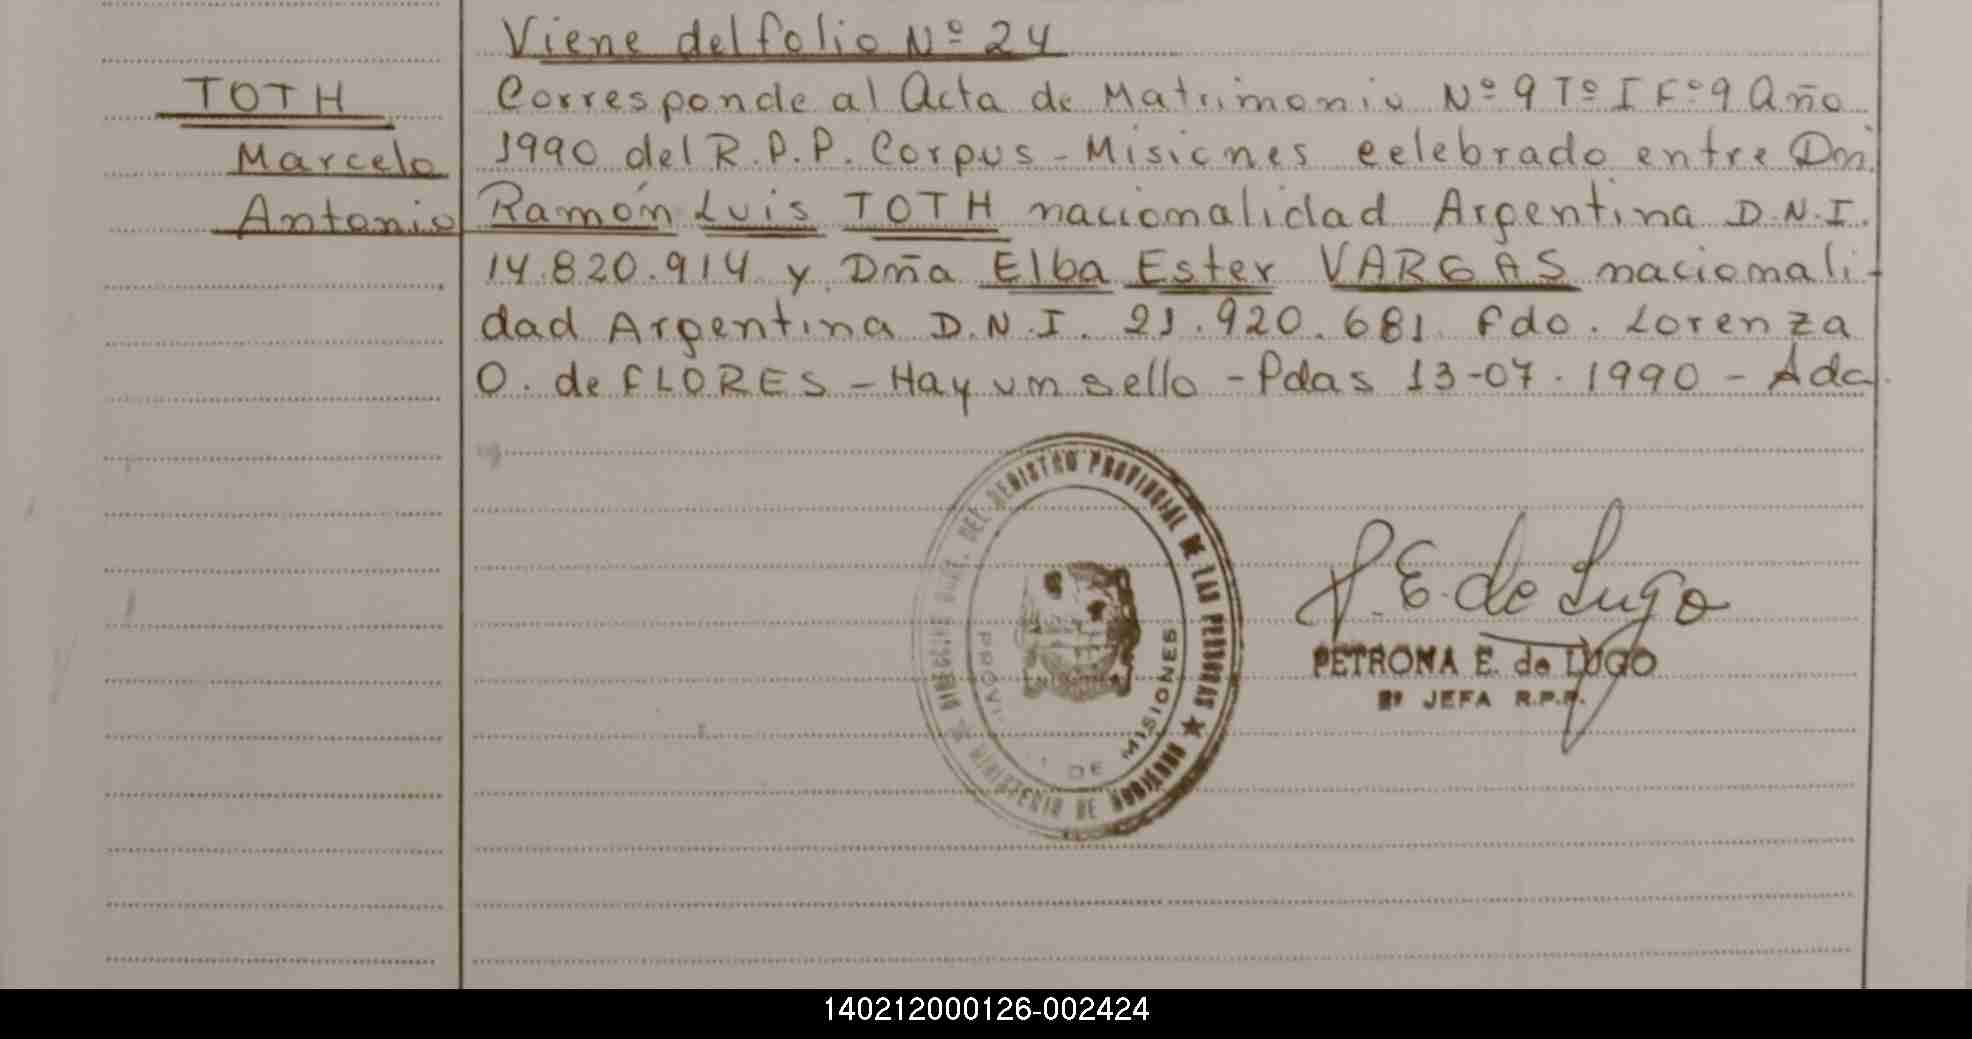 Viene del folio Nº 24
TOTH
Marcelo
Antonio
Corresponde al Acta de Matrimonio Nº 9 Tº I Fº 9 Año
1990 del R.P.P. Corpus - Misiones celebrado entre Dn.
Ramón Luis TOTH nacionalidad Argentina D.N.I.
14.820.914 y Dña Elba Ester VARGAS nacionali-
dad Argentina D.N.I. 21.920.681 Fdo. Lorenza
O. de FLORES - Hay un sello - Pdas 13-07-1990 - Ada.
DIRECCION GRAL. DEL REGISTRO PROVINCIAL DE LAS PERSONAS ★
MINISTERIO DE GOBIERNO
DE MISIONES
P.E. de Lugo
PETRONA E. de LUGO
JEFA R.P.P.
140212000126-002424